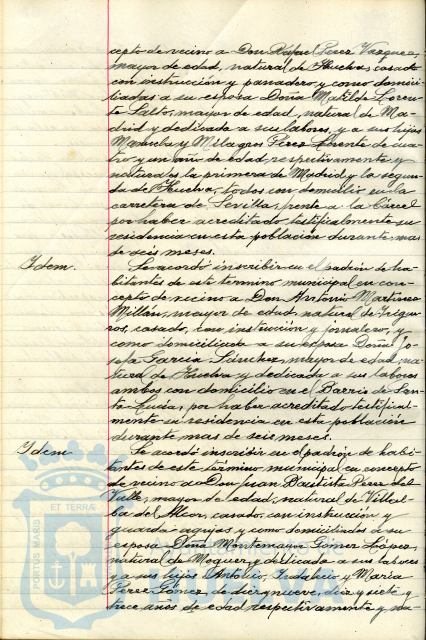 cepto de vecino a Don Rafael Perez Vazquez,
mayor de edad, natural de Huelva, casado
con instrucción y panadero y como domici-
liadas a su esposa Doña Matilde Loren-
te Salto, mayor de edad, natural de Ma-
drid y dedicada a sus labores, y a sus hijas
Manuela y Milagros Pérez Lorente de cua-
tro y un año de edad, respectivamente y
naturales la primera de Madrid y la segun-
da de Huelva, todos con domicilio en la
carretera de Sevilla, frente a la Cárcel
por haber acreditado testificalmente su
residencia en esta población durante mas
de seis meses.
Idem. Se acordó inscribir en el padrón de ha-
bitantes de este término municipal en con-
cepto de vecino a Don Antonio Martinez
Millán, mayor de edad, natural de Trigue-
ros, casado, con instrucción y jornalero, y
como domiciliada a su esposa Doña Jo-
sefa García Sánchez, mayor de edad, na-
tural de Huelva y dedicada a sus labores
ambos con domicilio en el Barrio de San-
ta Lucia, por haber acreditado testifical-
mente su residencia en esta población
durante mas de seis meses.
Idem Se acordó inscribir en el padrón de habi-
tantes de este término municipal en concepto
de vecino a Don Juan Bautista Perez del
Valle, mayor de edad, natural de Villal-
ba del Alcor, casado, con instrucción y
guarda agujas y como domiciliados a su
esposa Doña Montemayor Gómez López,
natural de Moguer y dedicada a sus labores
y a sus hijos Antonio, Indalecio y María
Perez Gómez, de diez y nueve, diez y siete y
trece años de edad respectivamente y na-
PORTUS MARIS
ET TERRÆ
Ayuntamiento de
HUELVA